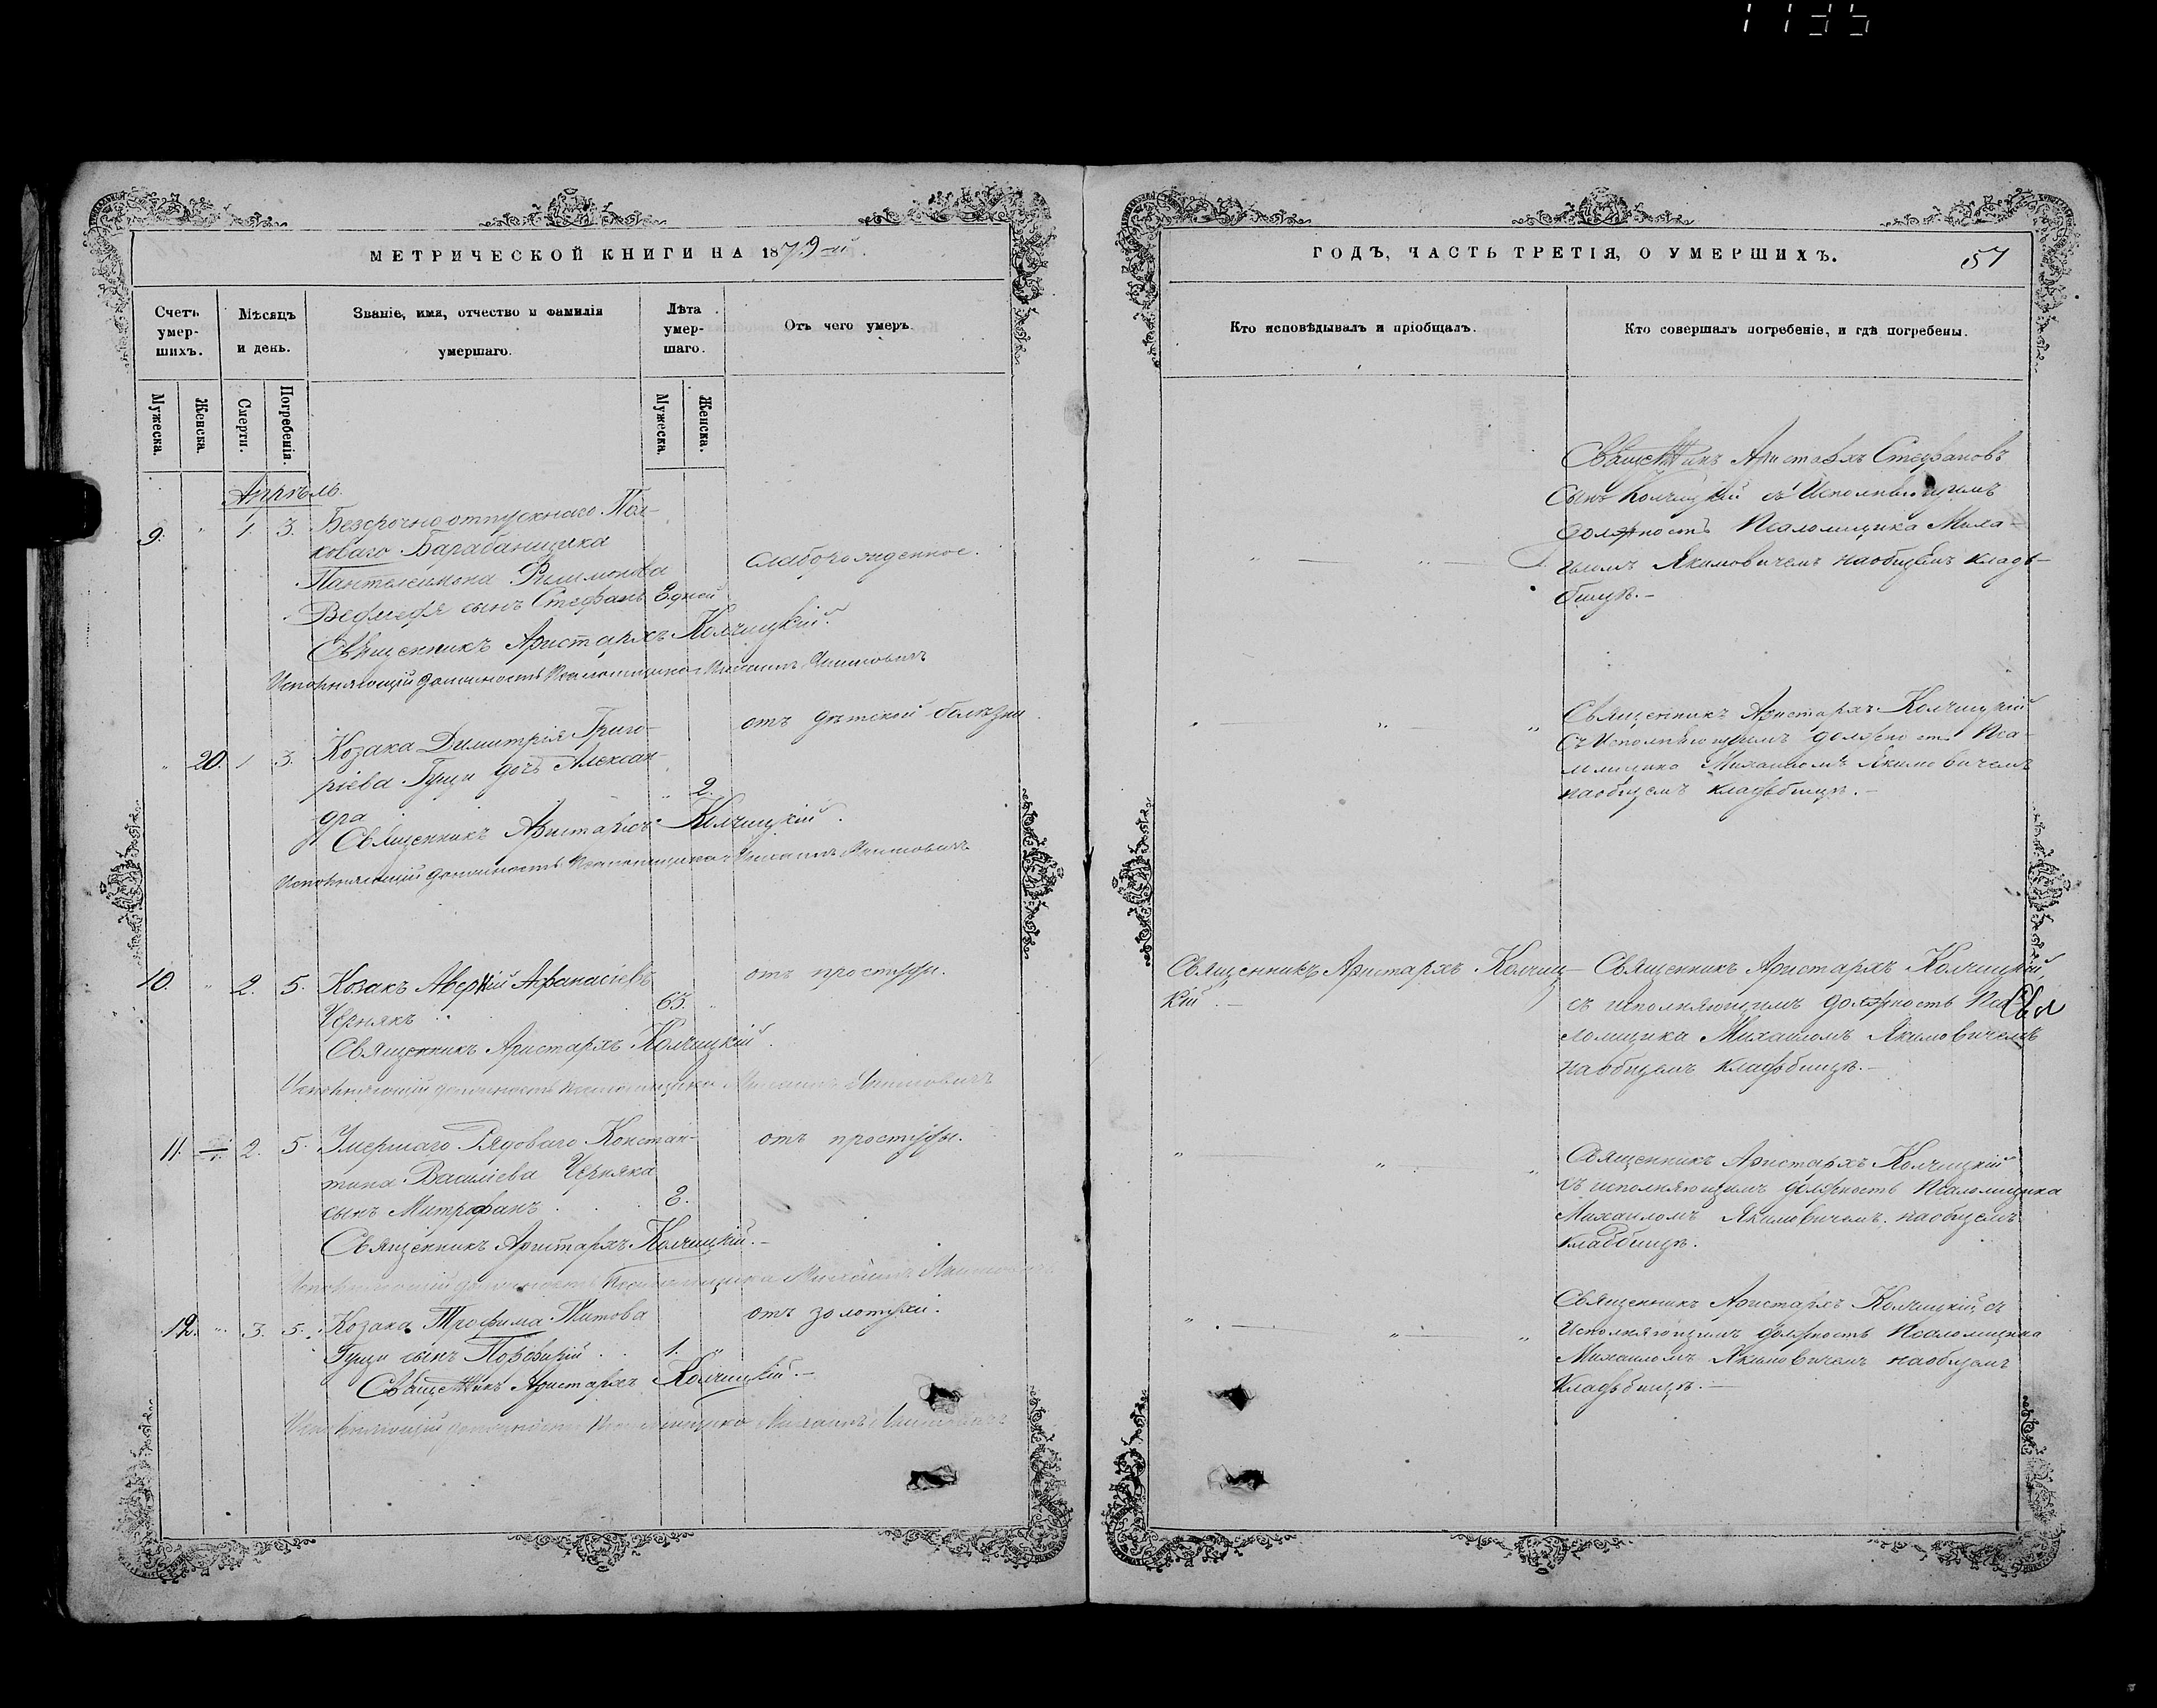 МЕТРИЧЕСКОЙ КНИГИ НА 1879 ый.
Счетъ умер-шихъ.
Мѣсяцъ и день.
Званіе, имя, отчество и фамилія умершаго.
Лѣта умер-шаго.
Отъ чего умеръ.
Мужеска.
Женска.
Смерти.
Погребенія.
Мужеска.
Женска.
Апрѣль.
9. " 1. 3. Безсрочноотпускнаго Пол-
коваго Барабанщика
Пантелеимона Филимонова
слаборожденное.
Ведмедя сынъ Стефанъ Едней
Священникъ Аристархъ Колчицкій.
Исполняющій должность Псаломщика Михаилъ Якимовичъ
" 20. 1 3. Козака Димитрія Григо-
отъ дѣтской болѣзни.
ріева Гущи дочь Алексан-
дра " 2.
Священникъ Аристархъ Колчицкій.
Исполняющій должность Псаломщика Михаилъ Якимовичъ
10. " 2. 5. Козакъ Аверкій Афанасіевъ
отъ простуды.
Чернякъ 63. "
Священникъ Аристархъ Колчицкій.
Исполняющій должность Псаломщика Михаилъ Якимовичъ
11. 2. 5. Умершаго Рядоваго Констан-
отъ простуды.
тина Василіева Черняка
сынъ Митрофанъ 2.
Священникъ Аристархъ Колчицкій.-
Исполняющій должность Псаломщика Михаилъ Якимовичъ
12. " 3. 5. Козака Трофима Титова
отъ золотухи.
Гущи сынъ Порфирій 1. "
Священникъ Аристархъ Колчицкій.-
Исполняющій должность Псаломщика Михаилъ Якимовичъ
ГОДЪ, ЧАСТЬ ТРЕТІЯ, О УМЕРШИХЪ.
57
Кто исповѣдывалъ и пріобщалъ.
Кто совершалъ погребеніе, и гдѣ погребены.
Священникъ Аристархъ Стефановъ
Сынъ Колчицкій съ Исполняющимъ
должность Псаломщика Миха-
иломъ Якимовичемъ наобщемъ кладь-
бищѣ.-
Священникъ Аристархъ Колчицкій
Съ Исполняющимъ должность Пса-
ломщика Михаиломъ Якимовичемъ
наобщемъ кладьбищѣ.-
Священникъ Аристархъ Колчиц-
кій.-
Священникъ Аристархъ Колчицкій,
съ исполняющимъ должность Пса-
ломщика Михаиломъ Якимовичемъ
наобщемъ кладьбищѣ.-
Свя
Священникъ Аристархъ Колчицкій
съ исполняющимъ должность Псаломщика
Михаиломъ Якимовичемъ наобщемъ
кладбищѣ.
Священникъ Аристархъ Колчицкій съ
Исполняющимъ должность Псаломщика
Михаиломъ Якимовичемъ наобщемъ
кладьбищѣ.-